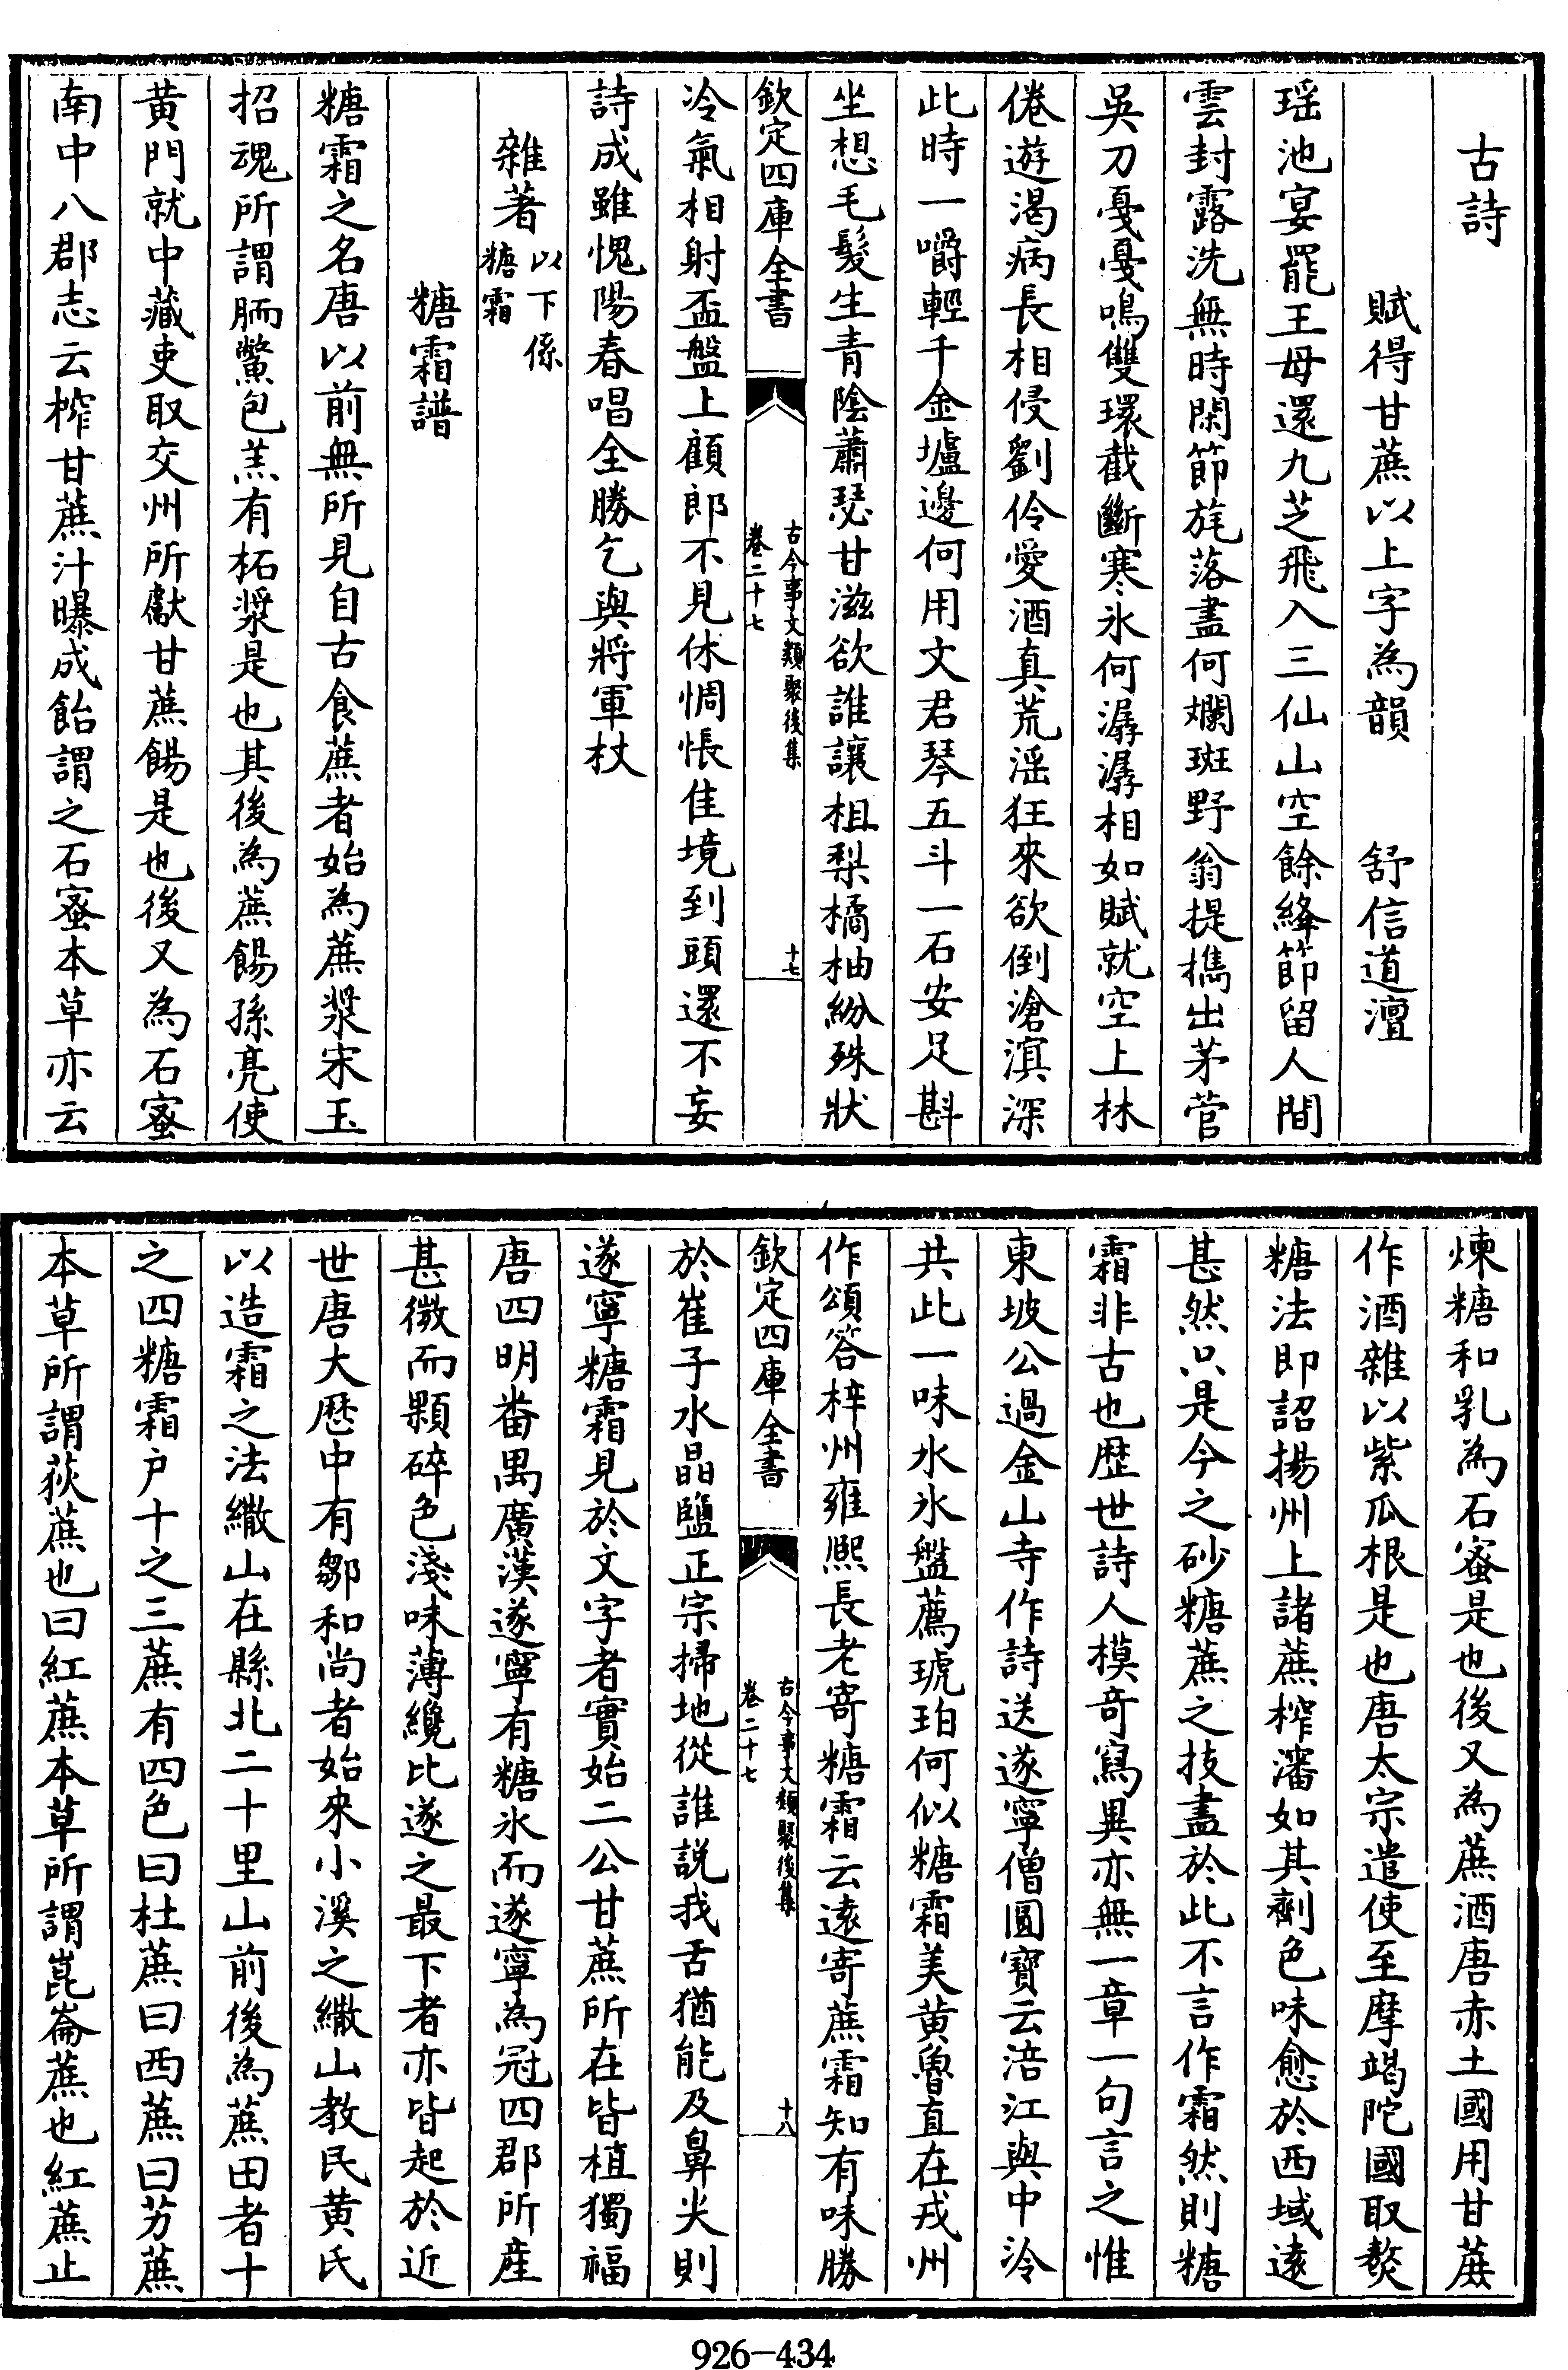 古詩
賦得甘蔗以上字為韻　舒信道澶
瑶池宴罷王母還九芝飛入三仙山空餘絳節留人間
雲封露洗無時閑節旄落盡何斕斑野翁提擕出茅菅
吳刀戛戛鳴雙環截斷寒氷何潺潺相如賦就空上林
倦遊渴病長相侵劉伶愛酒真荒淫狂來欲倒滄溟深
此時一嚼輕千金壚邊何用文君琴五斗一石安足斟
坐想毛髮生青陰蕭瑟甘滋欲誰讓柤梨橘柚紛殊狀
欽定四庫全書
古今事文類聚後集
卷二十七
十七
冷氣相射盃盤上顧郎不見休惆悵佳境到頭還不妄
詩成雖愧陽春唱全勝乞與將軍杖
雜著以下係糖霜
糖霜譜
糖霜之名唐以前無所見自古食蔗者始為蔗漿宋玉
招魂所謂胹鱉包羔有柘漿是也其後為蔗餳孫亮使
黄門就中藏吏取交州所獻甘蔗餳是也後又為石蜜
南中八郡志云榨甘蔗汁曝成飴謂之石蜜本草亦云
煉糖和乳為石蜜是也後又為蔗酒唐赤土國用甘蔗
作酒雜以紫瓜根是也唐太宗遣使至摩竭陀國取熬
糖法即詔揚州上諸蔗榨瀋如其劑色味愈於西域遠
甚然只是今之砂糖蔗之技盡於此不言作霜然則糖
霜非古也歴世詩人模奇寫異亦無一章一句言之惟
東坡公過金山寺作詩送遂寧僧圓寶云涪江與中泠
共此一味水氷盤薦琥珀何似糖霜美黄魯直在戎州
作頌答梓州雍熙長老寄糖霜云遠寄蔗霜知有味勝
欽定四庫全書
古今事文類聚後集
卷二十七
十八
於崔子水晶鹽正宗掃地從誰説我舌猶能及鼻尖則
遂寧糖霜見於文字者實始二公甘蔗所在皆植獨福
唐四明番禺廣漢遂寧有糖氷而遂寧為冠四郡所産
甚微而顆碎色淺味薄纔比遂之最下者亦皆起於近
世唐大歴中有鄒和尚者始來小溪之繖山教民黄氏
以造霜之法繖山在縣北二十里山前後為蔗田者十
之四糖霜户十之三蔗有四色曰杜蔗曰西蔗曰芳蔗
本草所謂荻蔗也曰紅蔗本草所謂崑崙蔗也紅蔗止
926-434